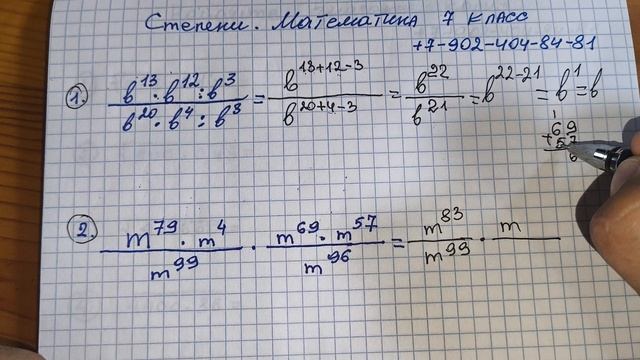 Степени. Математика 7 класс
+7-902-404-84-81
1. (b¹³ · b¹² : b³)/(b²⁰ · b⁴ : b³) = b¹³⁺¹²⁻³/b²⁰⁺⁴⁻³ = b²²/b²¹ = b²²⁻²¹ = b¹ = b
1
+69
57
6
2. (m⁷⁹ · m⁴)/m⁹⁹ · (m⁶⁹ · m⁵⁷)/m⁹⁶ = m⁸³/m⁹⁹ · m